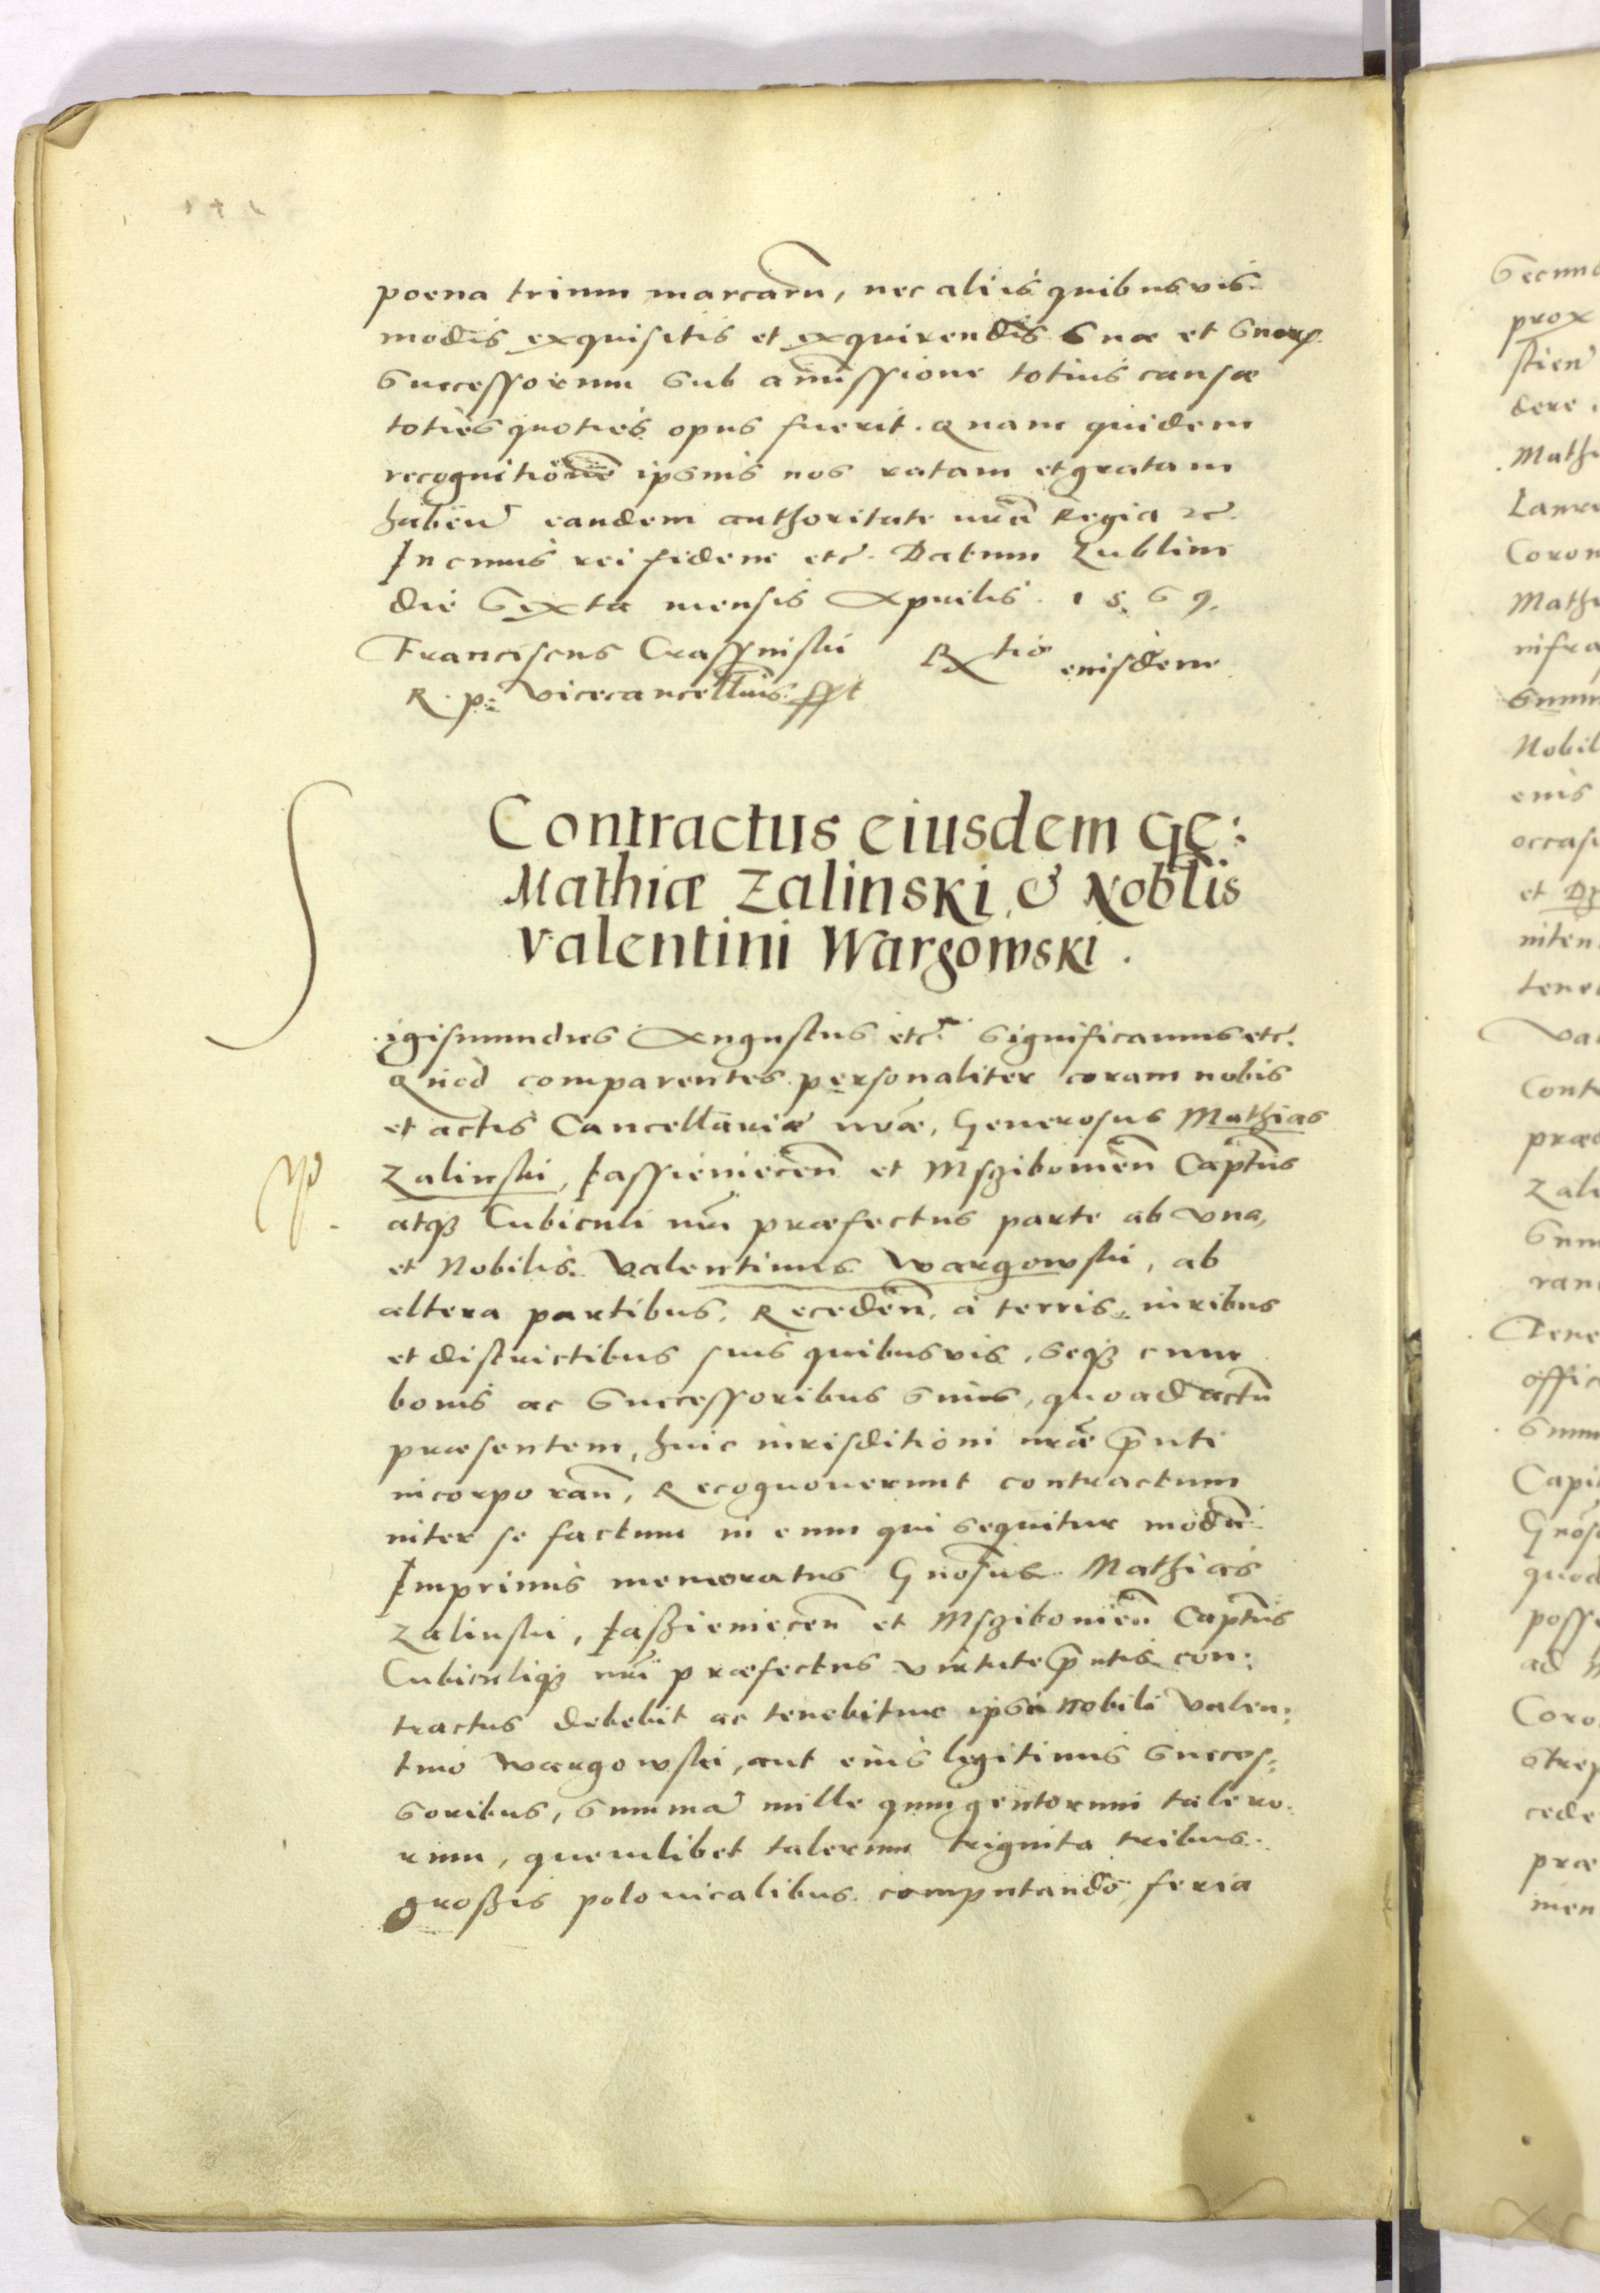 poena trium marcarũ, nec aliis quibusvis
modis exquisitis et exquirendis suæ et suorꝝ
Successorum sub amissione totius causæ
toties quoties opus fuerit. Quam quidem
recognitionẽ ipsius nos ratam et gratam
habeñ eandem authoritate nrã Regia etc.
In cuius rei fidem etc. Datum Lublini
die Sexta mensis Aprilis. 1569.
Franciscus Crassinski Rtio eiusdem
R. p: vicecancellrius sspt
Contractus eiusdem Ge:
Mathiæ Zalinski, & Noblis
Valentini Wargowski.
Sigismundus Augustus etc. Significamus etc.
Quod comparentes personaliter coram nobis
et actis Cancellariæ nrãe, Generosus Mathias
Zalinski, Jassieniecen̄ et Mszibowien̄ Capt̃us
atqꝫ Cubiculi nrĩ præfectus parte ab una,
et Nobilis Valentinus Wargowski, ab
altera partibus. Receden̄. à terris, iuribus
et districtibus suis quibusvis, seqꝫ cum
bonis ac Successoribus suis, quo ad actũ
præsentem, huic iurisditioni nrãe p̃nti
incorporan̄, Recognoverunt contractum
inter se factum in eum qui sequitur modũ.
Imprimis memoratus Gnõsus Mathias
Zalinski, Jaszieniecen̄ et Mszibowien̄ Capt̃us
Cubiculiqꝫ nrĩ præfectus virtute p̃ntis con:
tractus debebit ac tenebitur ipsi Nobili Valen:
tino Wargowski, aut eius legitimis succes:
soribus, summã mille quingentorum talero:
rum, quemlibet talerum triginta tribus
groszis polonicalibus computando, feria